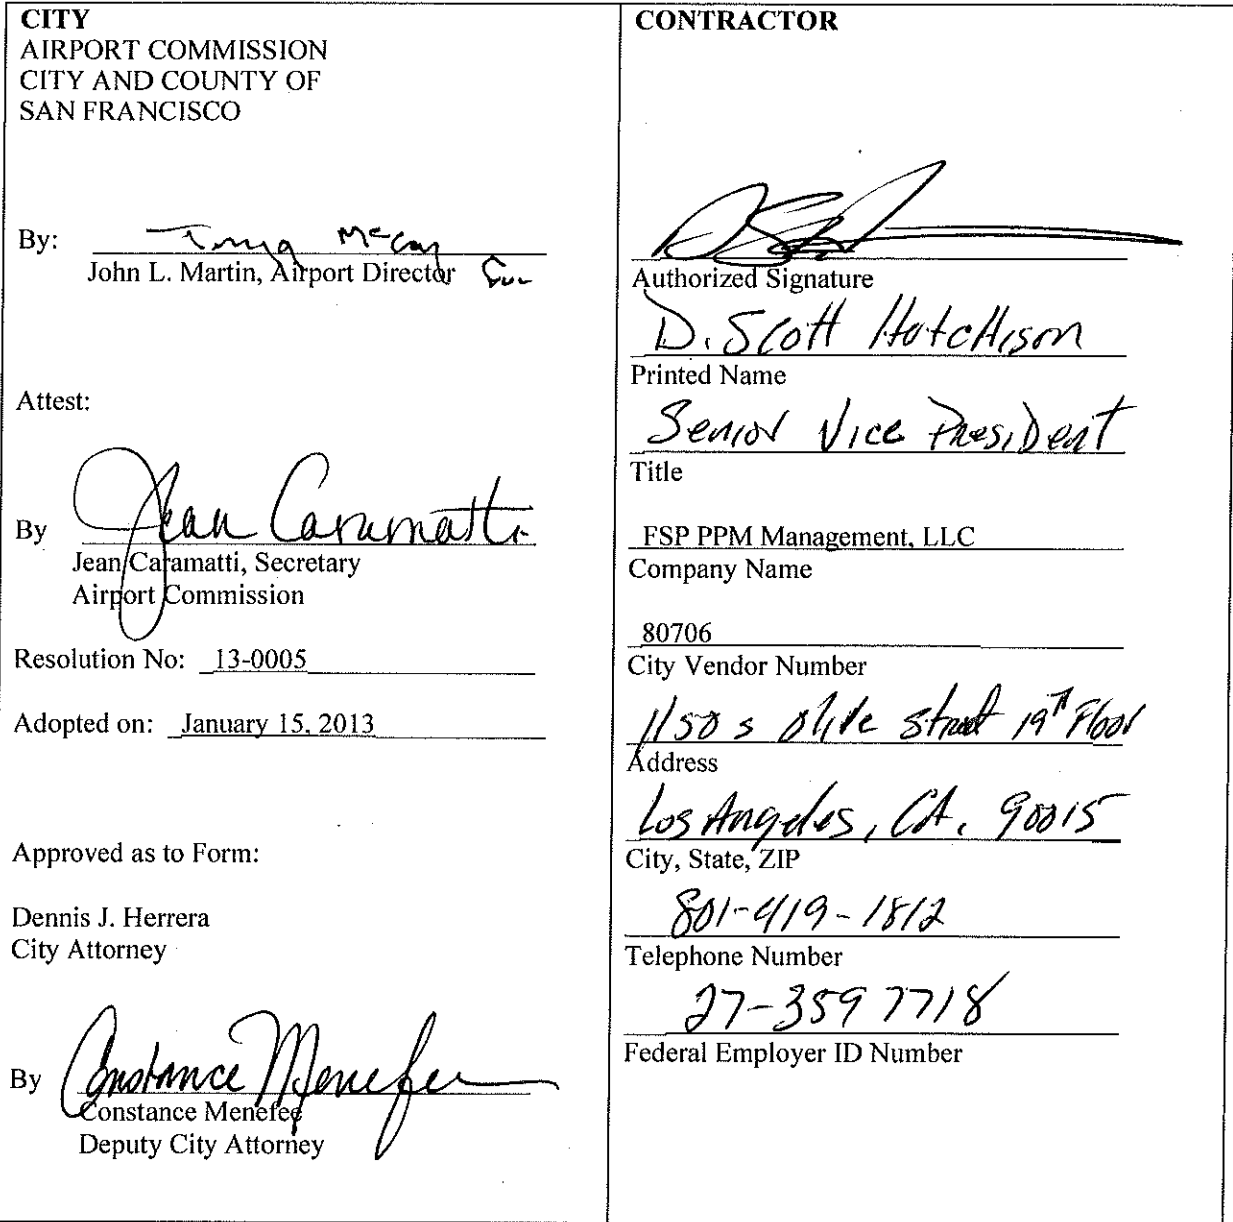 CITY
AIRPORT COMMISSION
CITY AND COUNTY OF
SAN FRANCISCO
By:
McCoy
John L. Martin, Airport Director for
Attest:
By Jean Caramatti
Jean Caramatti, Secretary
Airport Commission
Resolution No: 13-0005
Adopted on: January 15, 2013
Approved as to Form:
Dennis J. Herrera
City Attorney
By Constance Menefee
Constance Menefee
Deputy City Attorney
CONTRACTOR
Authorized Signature
D. Scott Hutchison
Printed Name
Senior Vice President
Title
FSP PPM Management, LLC
Company Name
80706
City Vendor Number
1150 s olive street 19th Floor
Address
Los Angeles, CA. 90015
City, State, ZIP
801-419-1812
Telephone Number
27-3597718
Federal Employer ID Number